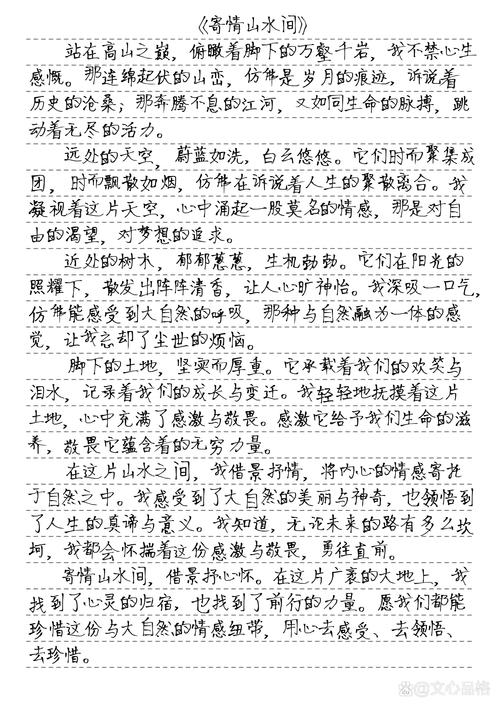 《寄情山水间》
站在高山之巅，俯瞰着脚下的万壑千岩，我不禁心生
感慨。那连绵起伏的山峦，仿佛是岁月的痕迹，诉说着
历史的沧桑；那奔腾不息的江河，又如同生命的脉搏，跳
动着无尽的活力。
远处的天空，蔚蓝如洗，白云悠悠。它们时而聚集成
团，时而飘散如烟，仿佛在诉说着人生的聚散离合。我
凝视着这片天空，心中涌起一股莫名的情感，那是对自
由的渴望，对梦想的追求。
近处的树木，郁郁葱葱，生机勃勃。它们在阳光的
照耀下，散发出阵阵清香，让人心旷神怡。我深吸一口气，
仿佛能感受到大自然的呼吸，那种与自然融为一体的感
觉，让我忘却了尘世的烦恼。
脚下的土地，坚实而厚重。它承载着我们的欢笑与
泪水，记录着我们的成长与变迁。我轻轻地抚摸着这片
土地，心中充满了感激与敬畏。感激它给予我们生命的滋
养，敬畏它蕴含着的无穷力量。
在这片山水之间，我借景抒情，将内心的情感寄托
于自然之中。我感受到了大自然的美丽与神奇，也领悟到
了人生的真谛与意义。我知道，无论未来的路有多么坎
坷，我都会怀揣着这份感激与敬畏，勇往直前。
寄情山水间，借景抒心怀。在这片广袤的大地上，我
找到了心灵的归宿，也找到了前行的力量。愿我们都能
珍惜这份与大自然的情感纽带，用心去感受、去领悟、
去珍惜。
@文心品格